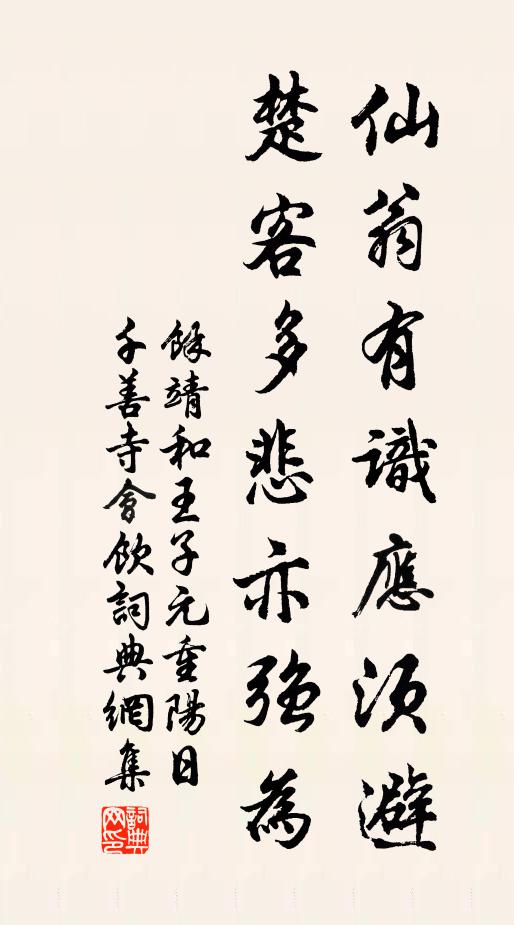 仙翁有識應須避
楚客多悲亦強為
餘靖和王子元重陽日
千善寺會飲詞典網集
詞典網印